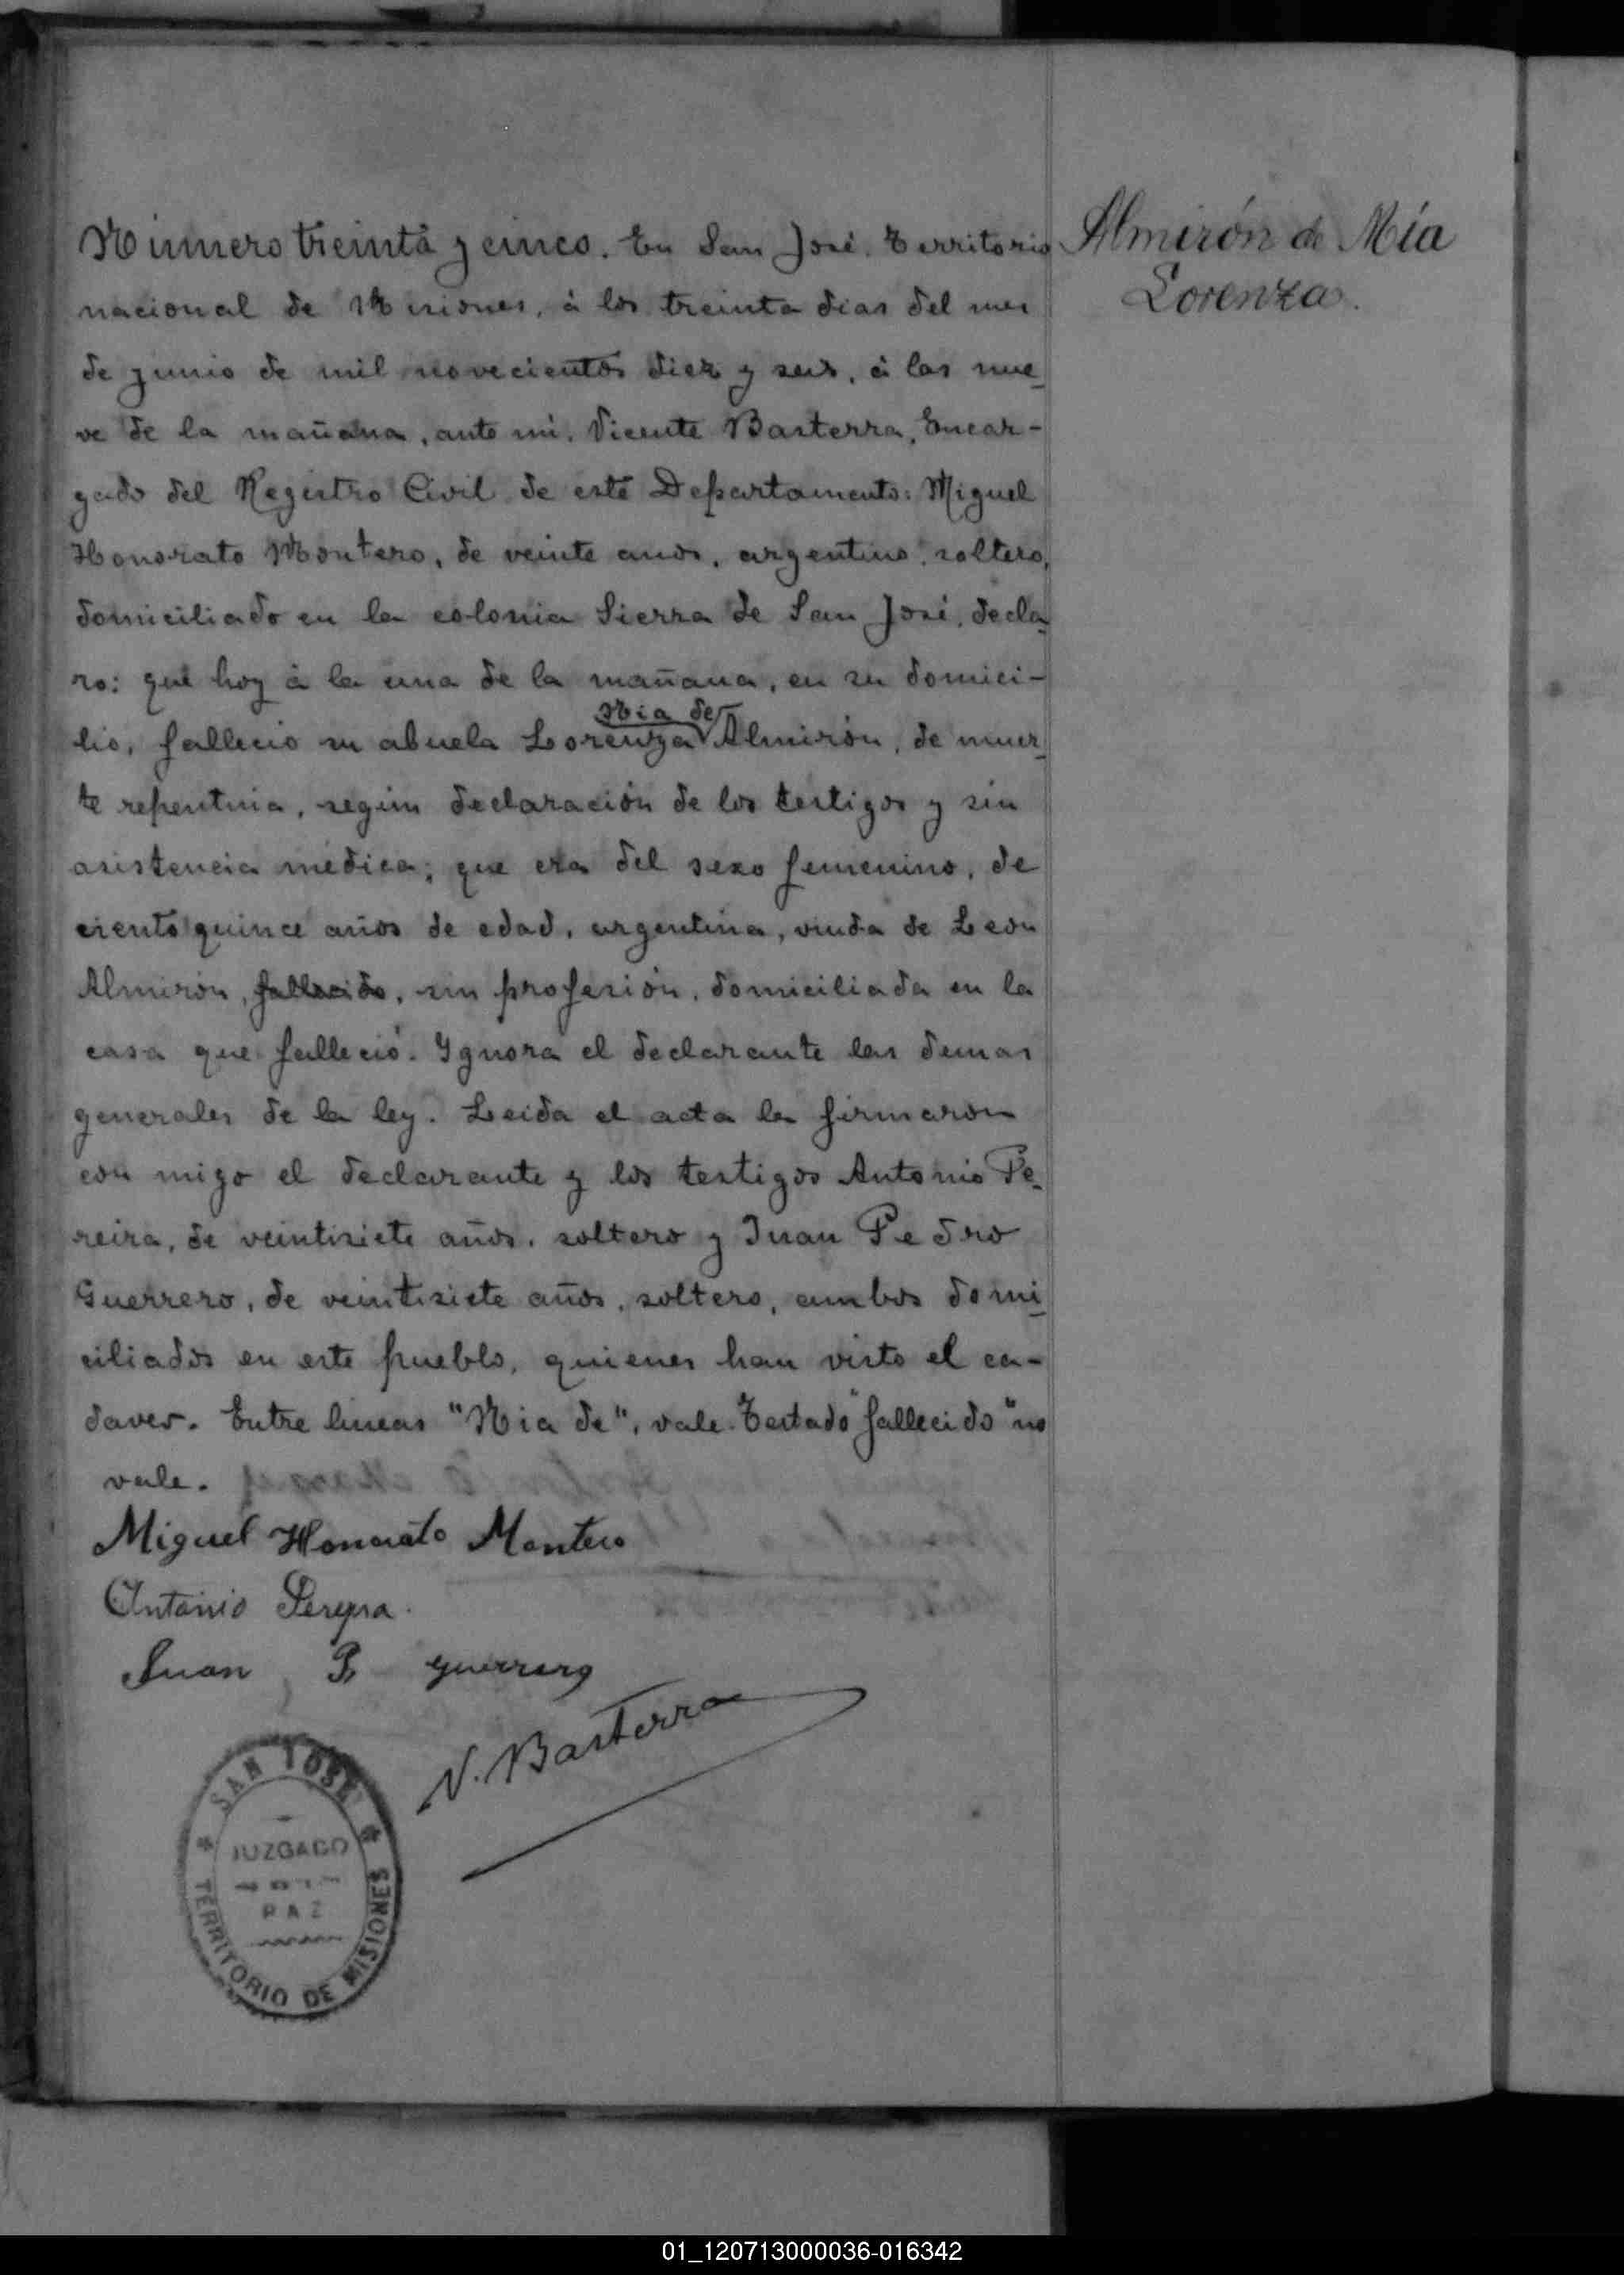 Número treinta y cinco. En San José. Territorio
nacional de Misiones, á los treinta dias del mes
de junio de mil novecientos diez y seis, á las nue-
ve de la mañana, ante mi, Vicente Basterra, Encar-
gado del Registro Civil de este Departamento: Miguel
Honorato Montero, de veinte anos, argentino, soltero,
domiciliado en la colonia Sierra de San José, decla-
ro: que hoy á la una de la mañana, en su domici-
Mia de
lio, falleció su abuela Lorenza Almirón, de muer-
te repentina, según declaración de los testigos y sin
asistencia médica; que era del sexo femenino, de
ciento quince años de edad, argentina, viuda de León
Almirón, fallecido, sin profesión, domiciliada en la
casa que falleció. Ygnora el declarante las demas
generales de la ley. Leida el acta la firmaron
con migo el declarante y los testigos Antonio Pe-
reira, de veintisiete años, soltero y Juan Pedro
Guerrero, de veintisiete años, soltero, ambos domi-
ciliados en este pueblo, quienes han visto el ca-
daver. Entre lineas "Mia de", vale. Testado "fallecido" no
vale.
Miguel Honorato Montero
Antonio Pereyra.
Juan P. guerrero
V. Basterra
SAN JOSÉ
JUZGADO
DE
PAZ
TERRITORIO DE MISIONES
Almirón de Mía
Lorenza.
01_120713000036-016342